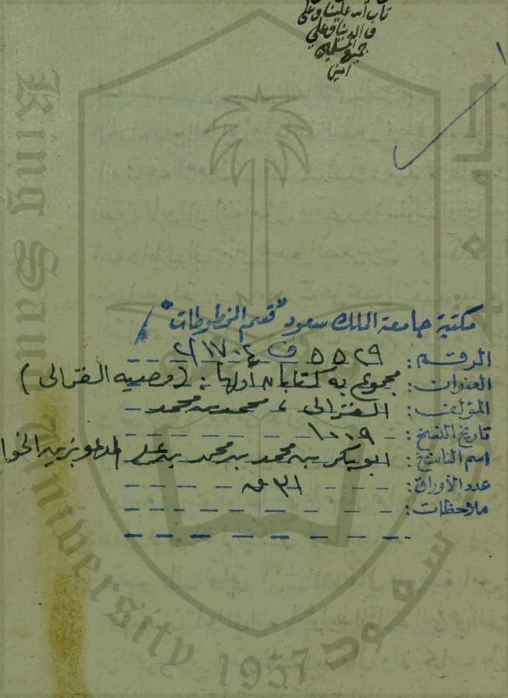 تاب الله علينا وعلى
والدينا وعلى
جميع المسلمين
امين
مكتبة جامعة الملك سعود "قسم المخطوطات"
الرقم: ٥٥٢٩ ف ٢١٧٠٤
العنوان: مجموع به كتابان اولها: (وصية الغزالى)
المؤلف: الغزالى، محمد بن محمد
تاريخ النسخ: ١٠٠٩
اسم الناسخ: ابو بكر بن محمد بن محمد بن علي المدعو بزين الخوا
عدد الأوراق: ٣١ ق
ملاحظات:
King Saud University 1957
جامعة الملك سعود